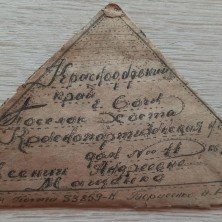 Краснодарский
край
г. Сочи
Поселок Хоста
Краснопартизанская
дом № 11
Ксении Андреевне
Мацейко
Почта 53859-Н